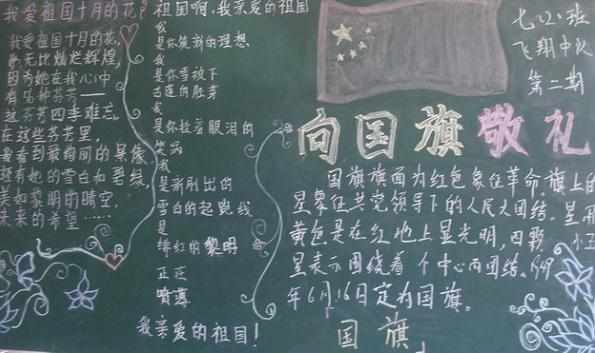 我爱祖国十月的花
我爱祖国十月的花,
无比灿烂辉煌,
因为她在我心中
有各种芬芳——
这芬芳四季难忘。
在这些芬芳里,
我看到最绚丽的景像,
还有她的雪白和翠绿,
美如黎明的晴空,
未来的希望……
祖国啊,我亲爱的祖国
我
是你簇新的理想,
我
是你雪被下
古莲的胚芽
我
是你挂着眼泪的
笑涡
我
是新刷出的
雪白的起跑线
是
绯红的黎明
正在
喷薄
我亲爱的祖国!
七(2)班
飞翔中队
第二期
向国旗敬礼
国旗旗面为红色象征革命旗上的
星象征共党领导下的人民大团结。星用
黄色是在红地上显光明,四颗小五
星表示围绕着一个中心而团结。
年6月16日定为国旗。
国旗